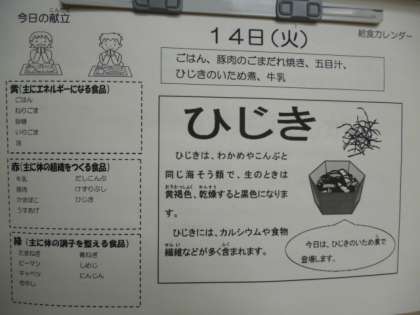 今日の献立
こんだて
14日(火)
給食カレンダー
ごはん、豚肉のごまだれ焼き、五目汁、
ひじきのいため煮、牛乳
黄(主にエネルギーになる食品)
ごはん
ねりごま
砂糖
いりごま
油
赤(主に体の組織をつくる食品)
牛乳 だしこんぶ
豚肉 けずりぶし
かまぼこ ひじき
うすあげ
緑(主に体の調子を整える食品)
たまねぎ 青ねぎ
ピーマン しめじ
キャベツ にんじん
もやし
ひじき
ひじきは、わかめやこんぶと
同じ海そう類で、生のときは
おうかっしょく かんそう
黄褐色、乾燥すると黒色になりま
す。
ひじきには、カルシウムや食物
せんい ふく
繊維などが多く含まれます。
今日は、ひじきのいため煮で
登場します。